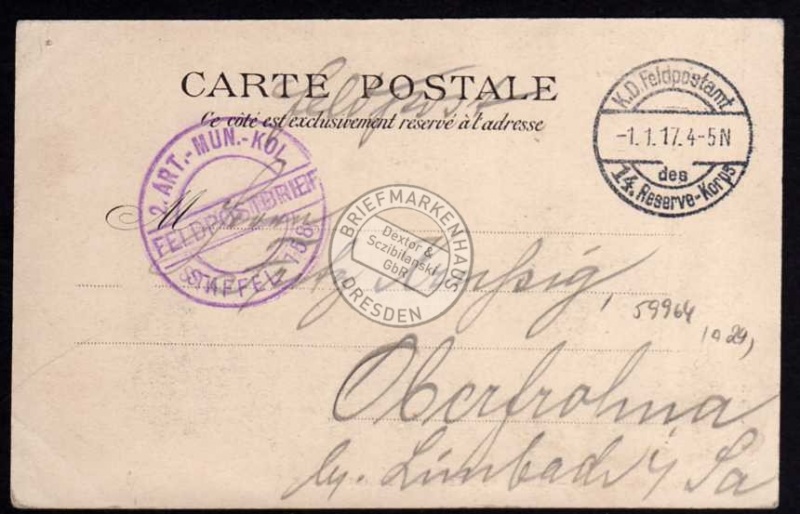 CARTE POSTALE
Feldpost
Ce côté est exclusivement réservé à l'adresse
K.D. Feldpostamt
-1.1.17. 4-5N
des
14. Reserve-Korps
2. ART.-MUN.-KOL.
FELDPOSTBRIEF
STAFFEL 158
M
BRIEFMARKENHAUS
Dextor &
Sczibilanski
GbR
DRESDEN
59964
Oberfrohna
by. Limbach i/Sa